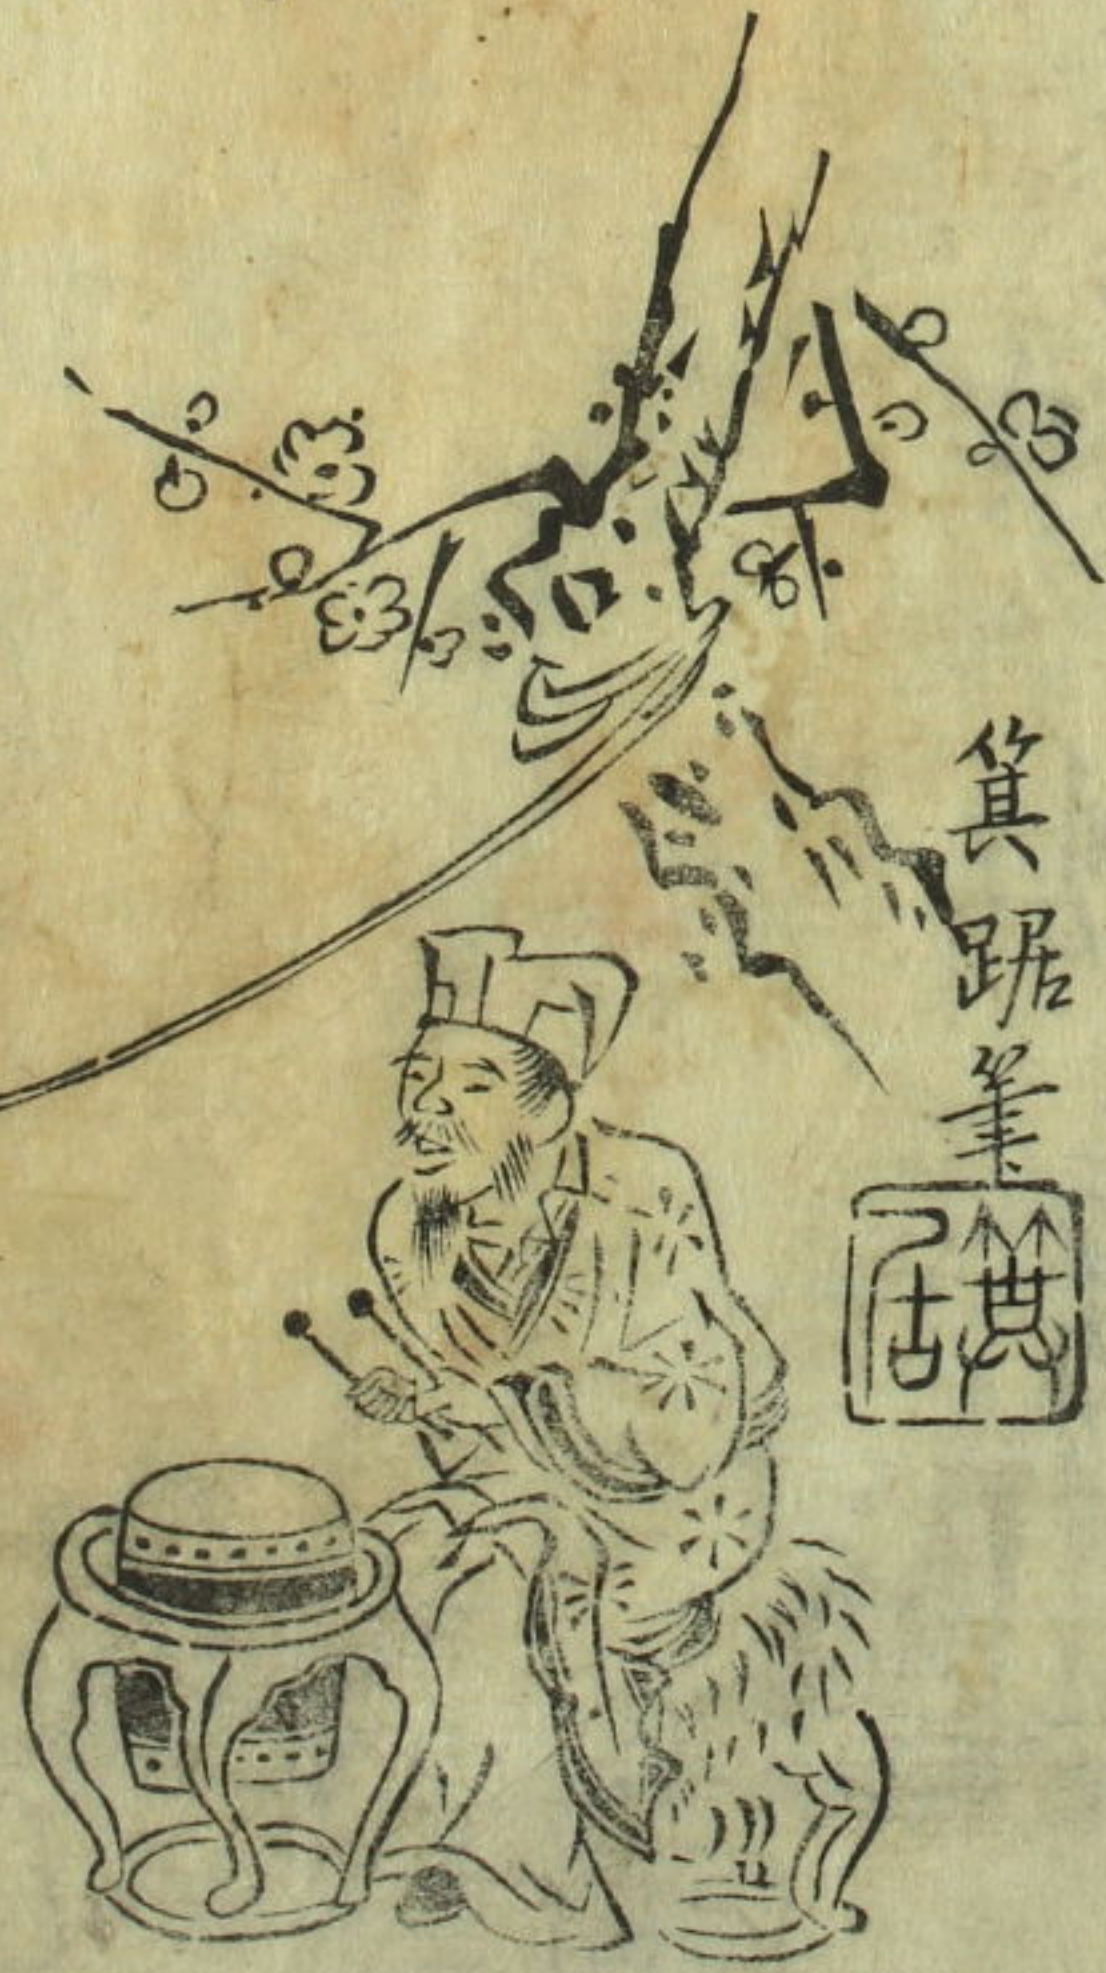 箕踞筆
箕居